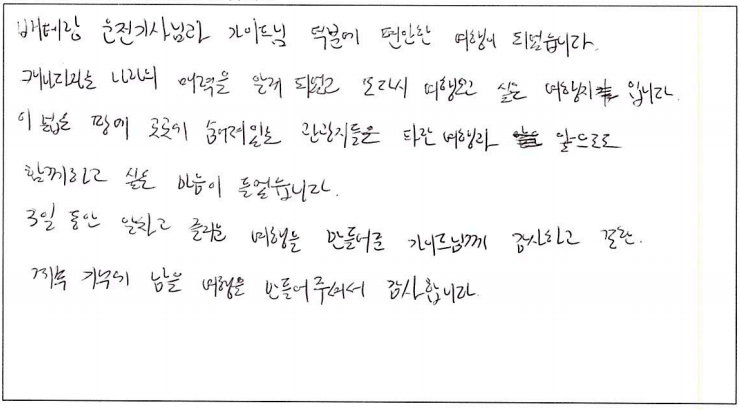 배테랑 운전기사님과 가이드님 덕분에 편안한 여행이 되었습니다.
캐나다라는 나라의 매력을 알게 되었고 또다시 여행오고 싶은 여행지 입니다.
이 넓은 땅에 곳곳이 숨어져있는 관광지들은 파란여행과 앞으로도
함께하고 싶은 마음이 들었습니다.
3일 동안 알차고 즐거운 여행을 만들어준 가이드님께 감사하고
기억에 남을 여행을 만들어주셔서 감사합니다.